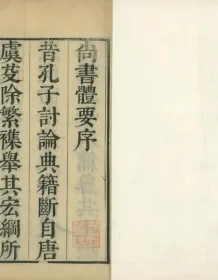 尚書體要序
昔孔子討論典籍斷自唐
虞芟除繁襍舉其宏綱所